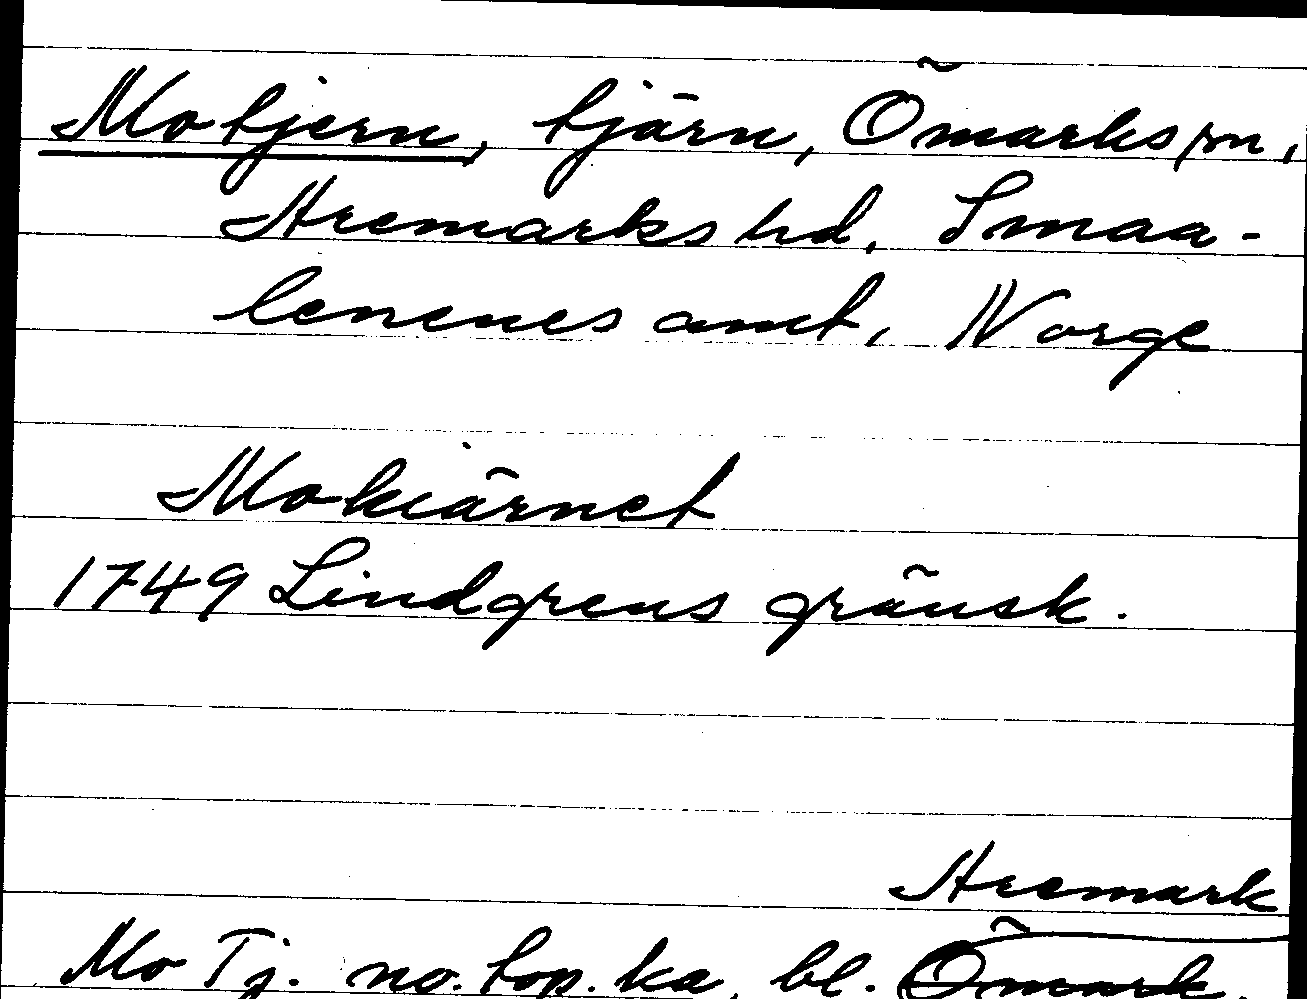 Motjern, tjärn, Ömarks sn,
Aremarks hd, Smaa-
lenenes amt, Norge
Mokiärnet
1749 Lindgrens gränsk.
Aremark
Mo Tj. no. top. ka, bl. Ömark.